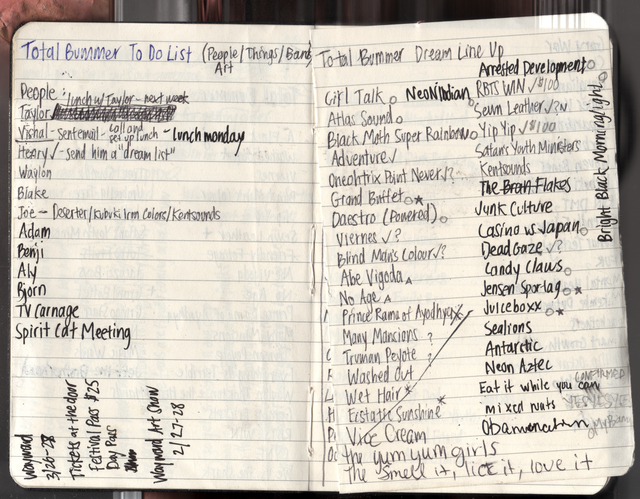 Total Bummer To Do List (People/Things/Band
Art
People
lunch w/Taylor - next week
Taylor
Vishal - sentemail - call and set up lunch - lunch monday
Henry ✓ - send him a "dream list"
Waylon
Blake
Joe - Deserter/Kubuki Irm Colors/Kentsounds
Adam
Benji
Aly
Bjorn
TV Carnage
Spirit Cat Meeting
Wayward
3/26-28
Tickets at the door
Festival Pass $25
Day Pass
Wayward Art Show
2/27-28
Total Bummer Dream Line Up
Girl Talk
Neon Indian
Atlas Sound
Black Moth Super Rainbow
Adventure ✓
Oneohtrix Point Never ✓?
Grand Buffet *
Daestro (Powered)
Viernes ✓?
Blind Man's Colour ✓?
Abe Vigoda
No Age
Prince Rama of Ayodhya
Many Mansions ?
Truman Peyote ?
Washed Out
Wet Hair *
Ecstatic Sunshine *
Vice Cream
the yum yum girls
The Smell it, lick it, love it
Arrested Development
RBTS WIN ✓ $100
Sewn Leather ✓?N
Yip Yip ✓ $100
Satan's Youth Ministers
Kentsounds
The Bran Flakes
Junk Culture
Casino vs Japan
Dead Gaze ✓?
Candy Claws
Jensen Sportag *
Juiceboxx *
Sealions
Antarctic
Neon Aztec
CONFIRMED
Eat it while you can
mixed nuts
Bright Black Morninglight